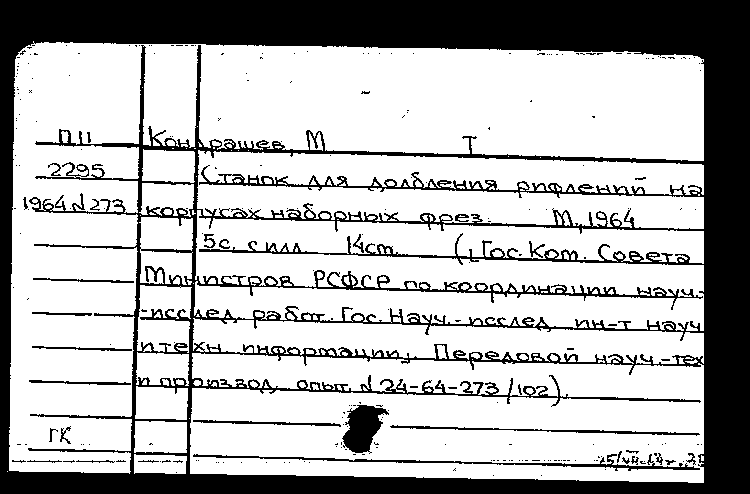 ПII Кондрашев, М Т
2295 Станок для долбления рифлений на
1964 N 273 корпусах наборных фрез. М, 1964
5с. с илл 14см. ([Гос. Ком. Совета
Министров РСФСР по координации науч.-
-исслед. работ. Гос. Науч.-исслед ин-т науч
и техн информации]. Передовой науч.-тех
и производ. опыт. N 24-64-273/102).
ГК